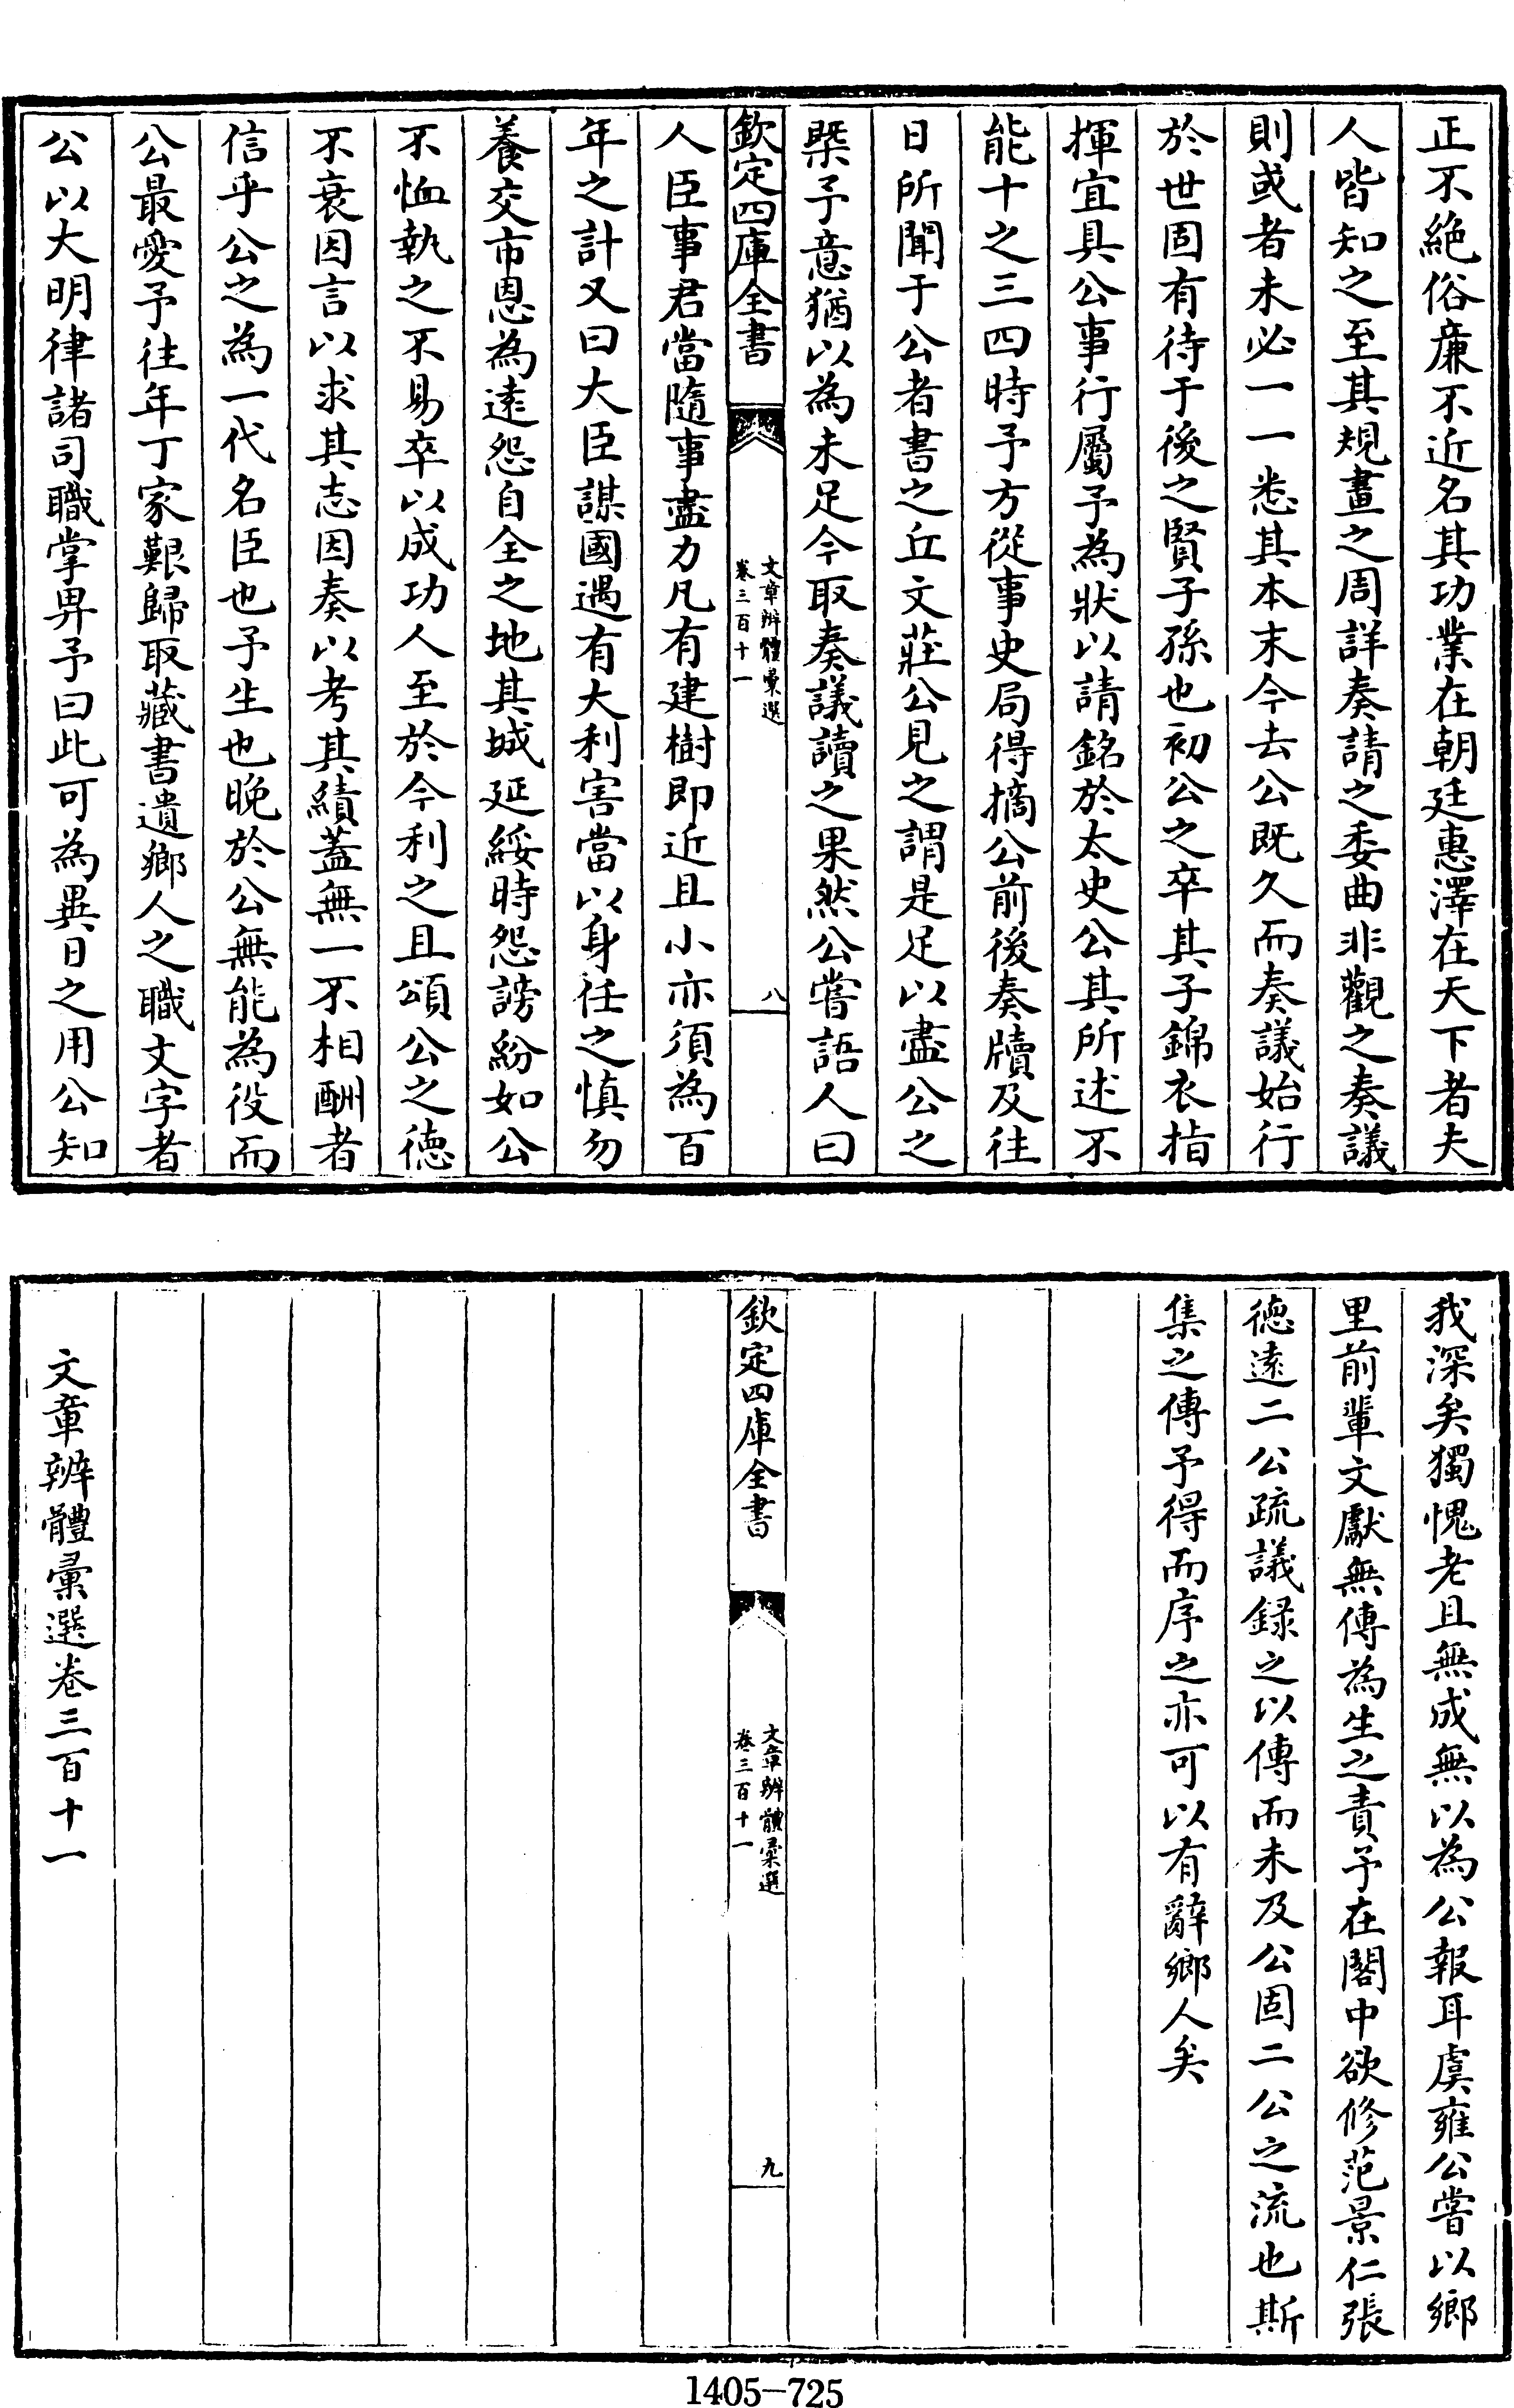 正不絶俗亷不近名其功業在朝廷惠澤在天下者夫
人皆知之至其規畫之周詳奏請之委曲非觀之奏議
則或者未必一一悉其本末今去公既久而奏議始行
於世固有待于後之賢子孫也初公之卒其子錦衣指
揮宜具公事行屬予為狀以請銘於太史公其所述不
能十之三四時予方從事史局得摘公前後奏牘及往
日所聞于公者書之丘文莊公見之謂是足以盡公之
槩予意猶以為未足今取奏議讀之果然公嘗語人曰
欽定四庫全書
文章辨體彙選
卷三百十一
八
人臣事君當隨事盡力凡有建樹即近且小亦須為百
年之計又曰大臣謀國遇有大利害當以身任之慎勿
養交市恩為逺怨自全之地其城延綏時怨謗紛如公
不恤執之不易卒以成功人至於今利之且頌公之德
不衰因言以求其志因奏以考其績蓋無一不相酬者
信乎公之為一代名臣也予生也晚於公無能為役而
公最愛予往年丁家艱歸取藏書遺鄉人之職文字者
公以大明律諸司職掌畀予曰此可為異日之用公知
我深矣獨愧老且無成無以為公報耳虞雍公嘗以鄉
里前輩文獻無傳為生之責予在閣中欲修范景仁張
德逺二公疏議録之以傳而未及公固二公之流也斯
集之傳予得而序之亦可以有辭鄉人矣
欽定四庫全書
文章辨體彙選
卷三百十一
九
文章辨體彙選卷三百十一
1405-725